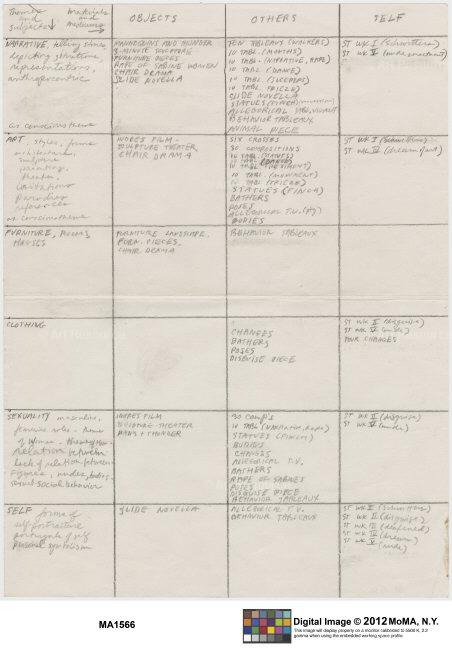 Themes and Subjects
Materials and Mediums
OBJECTS
OTHERS
SELF
NARRATIVE, telling stories,
depicting situations,
representations,
anthropocentric
as conscious theme
MANNEQUINS AND THUNDER
3-MINUTE SCULPTURE
FURNITURE PIECES
RAPE OF SABINE WOMEN
CHAIR DRAMA
SLIDE NOVELLA
TEN TABLEAUX (WALKERS)
10 TABL. (MONTHS)
10 TABL (NARRATIVE, RAPE)
10 TABL (DANCE)
10 TABL (SLEEPERS)
10 TABL (FRIEZE)
SLIDE NOVELLA
STATUES (FINCH)
ALLEGORICAL
BEHAVIOR TABLEAUX
ANIMAL PIECE
ST WK I (Schwitters)
ST WK V
ART, styles, forms
architecture,
sculpture
painting,
theater,
imitations
parodies
references
as conscious theme
NUDES FILM -
SCULPTURE THEATER
CHAIR DRAMA
SIX CROSSES
30 COMPOSITIONS
10 TABL (STATUES)
10 TABL (DANCE)
10 TABL
10 TABL (MOVEMENT)
10 TABL (FRIEZE)
STATUES (FINCH)
BATHERS
POSES
ALLEGORICAL T.V.
BODIES
ST WK I (Schwitters)
ST WK IV (dream)
FURNITURE, ROOMS,
HOUSES
FURNITURE LANDSCAPE,
FURN. PIECES,
CHAIR DRAMA
BEHAVIOR TABLEAUX
CLOTHING
CHANGES
BATHERS
POSES
DISGUISE PIECE
ST WK II (disguise)
ST WK V (nude)
FOUR CHANGES
SEXUALITY masculine,
feminine roles - theme
of women -
Relation between
lack of relation between
figures, nudes, bodies,
sexual social behavior
NUDES FILM
THEATER
THUNDER
30 Comp's
10 TABL (NARRATION, Rape)
STATUES (FINCH)
BODIES
CHANGES
ALLEGORICAL T.V.
BATHERS
RAPE OF SABINES
POSES
DISGUISE PIECE
BEHAVIOR TABLEAUX
ST WK II (disguise)
ST WK V (nude)
SELF forms of
self portraiture
portraying of self
personal symbolism
SLIDE NOVELLA
ALLEGORICAL T.V.
BEHAVIOR TABLEAUX
ST WK I (Schwitters)
ST WK II (disguise)
ST WK III (deafened)
ST WK IV (dream)
ST WK V (nude)
MA1566
Digital Image © 2012 MoMA, N.Y.
This image will display properly on a monitor calibrated to 5500 K, 2.2
gamma when using the embedded working space profile